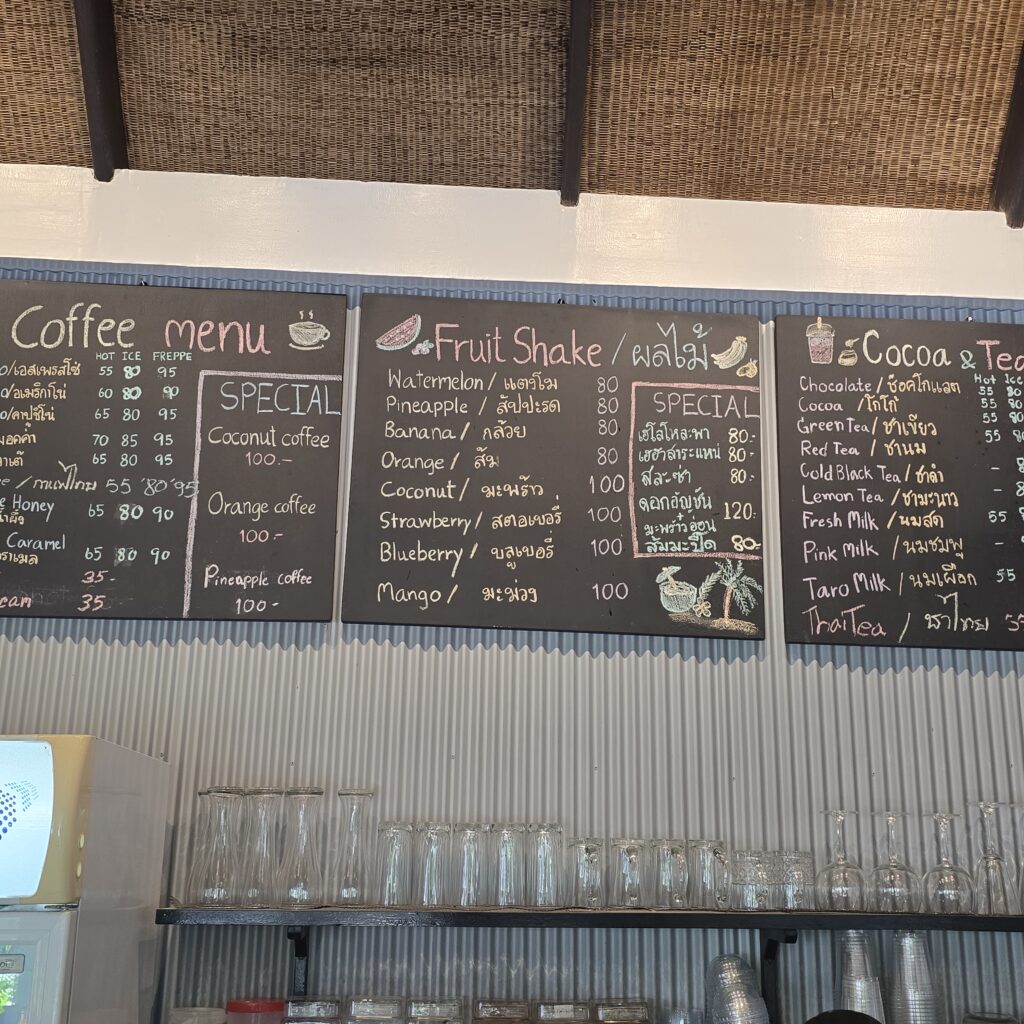 Coffee menu
HOT ICE FREPPE
/เอสเพรสโซ่ 55 80 95
/อเมริกาโน่ 60 80 95
/คาปูชิโน่ 65 80 95
70 85 95
65 80 95
/กาแฟไทย 55 80 95
Honey 65 80 90
Caramel
65 80 90
35.-
35
SPECIAL
Coconut coffee
100.-
Orange coffee
100.-
Pineapple coffee
100.-
Fruit Shake / ผลไม้
Watermelon / แตงโม 80
Pineapple / สัปปะรด 80
Banana / กล้วย 80
Orange / ส้ม 80
Coconut / มะพร้าว 100
Strawberry / สตอเบอรี่ 100
Blueberry / บลูเบอรี่ 100
Mango / มะม่วง 100
SPECIAL
80.-
80.-
80.-
ดอกอัญชัน
มะพร้าวอ่อน 120.-
ส้มมะปี๊ด 80.-
Cocoa & Tea
Hot Ice
Chocolate / ช็อคโกแลต 55 80
Cocoa / โกโก้ 55 80
Green Tea / ชาเขียว 55 80
Red Tea / ชานม
Cold Black Tea / ชาดำ -
Lemon Tea / ชามะนาว -
Fresh Milk / นมสด 55
Pink Milk / นมชมพู -
Taro Milk / นมเผือก 55
Thai Tea / ชาไทย